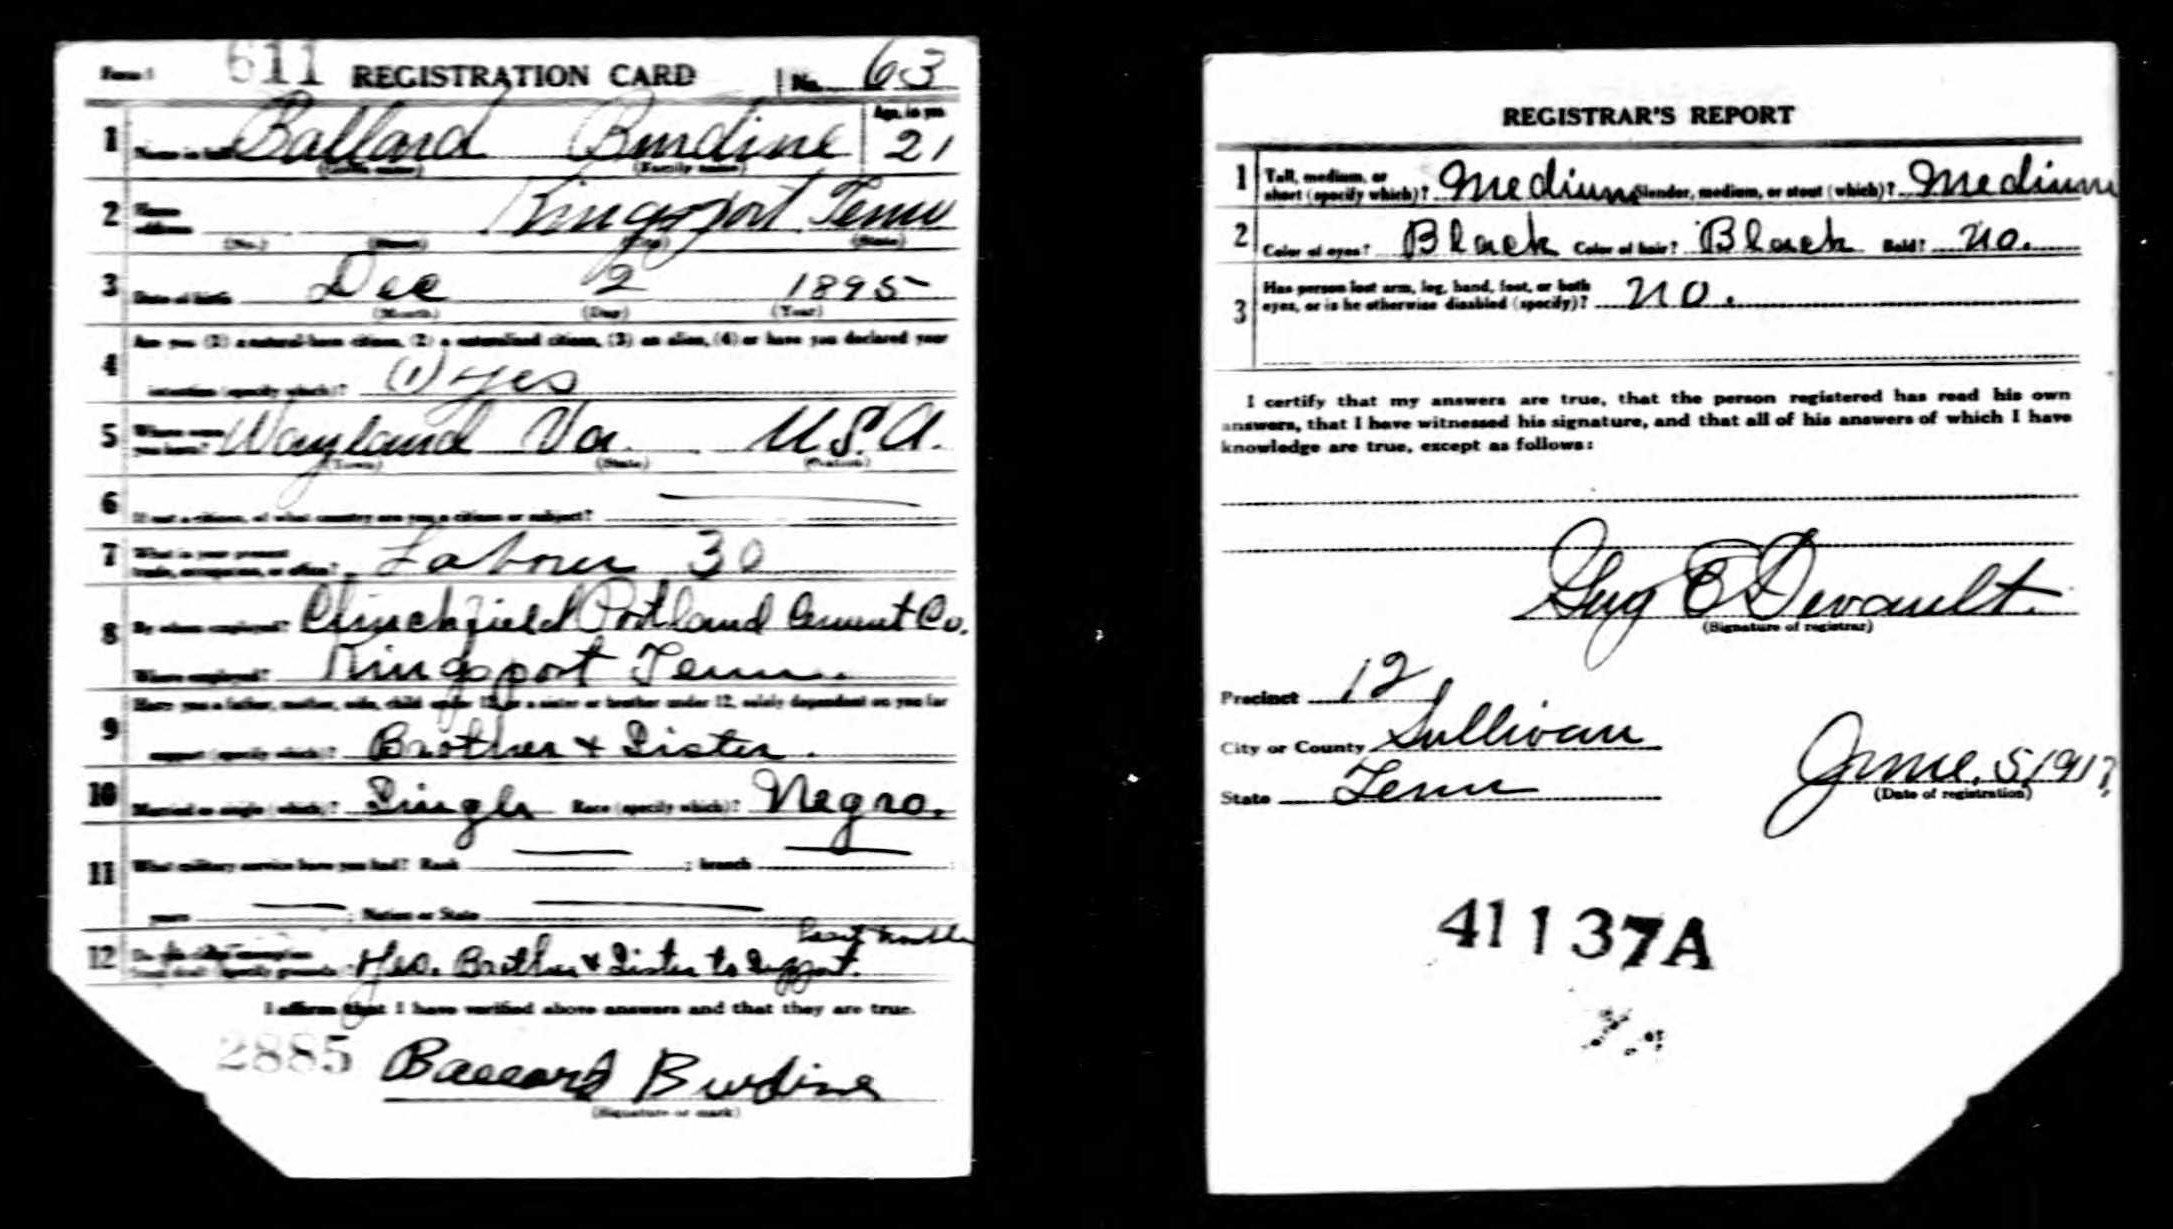 Form 1 611 REGISTRATION CARD No. 63
1 Name in full Ballard Burdine Age, in yrs 21
(Given name) (Family name)
2 Home address Kingsport Tenn
(No.) (Street) (City) (State)
3 Date of birth Dec 2 1895
(Month) (Day) (Year)
4 Are you (1) a natural-born citizen, (2) a naturalized citizen, (3) an alien, (4) or have you declared your
intention (specify which)? (1) Yes
5 Where were you born? Wayland Va. U.S.A.
(Town) (State) (Nation)
6 If not a citizen, of what country are you a citizen or subject?
7 What is your present trade, occupation, or office? Labour 30
8 By whom employed? Clinchfield Portland Cement Co.
Where employed? Kingsport Tenn.
9 Have you a father, mother, wife, child under 12, or a sister or brother under 12, solely dependent on you for
support (specify which)? Brother & Sister.
10 Married or single (which)? Single Race (specify which)? Negro.
11 What military service have you had? Rank ; branch
years ; Nation or State
12 Do you claim exemption from draft (specify grounds)? Yes. Brother & Sister to support.
I affirm that I have verified above answers and that they are true.
2885 Ballard Burdine
(Signature or mark)
REGISTRAR'S REPORT
1 Tall, medium, or short (specify which)? Medium Slender, medium, or stout (which)? Medium
2 Color of eyes? Black Color of hair? Black Bald? No.
3 Has person lost arm, leg, hand, foot, or both
eyes, or is he otherwise disabled (specify)? No.
I certify that my answers are true, that the person registered has read his own
answers, that I have witnessed his signature, and that all of his answers of which I have
knowledge are true, except as follows:
Guy E Devault.
(Signature of registrar)
Precinct 12
City or County Sullivan
State Tenn
June. 5 1917
(Date of registration)
41137A